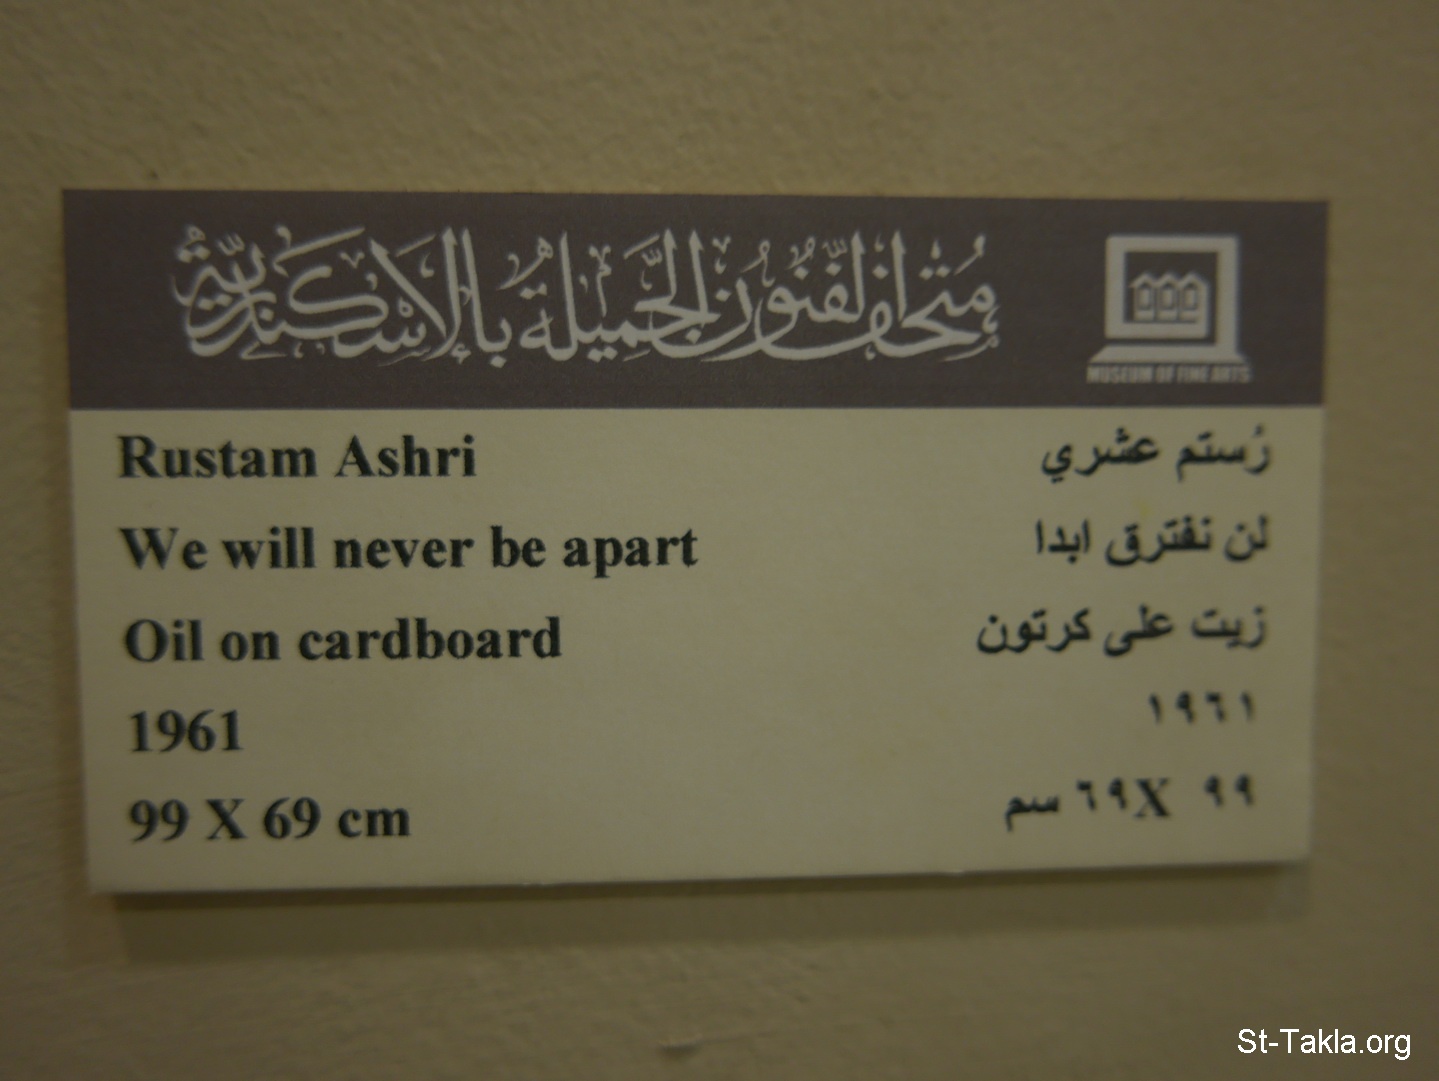 متحف الفنون الجميلة بالاسكندرية
MUSEUM OF FINE ARTS
Rustam Ashri
رُستم عشري
We will never be apart
لن نفترق ابدا
Oil on cardboard
زيت على كرتون
1961
١٩٦١
99 X 69 cm
٩٩ X٦٩ سم
St-Takla.org